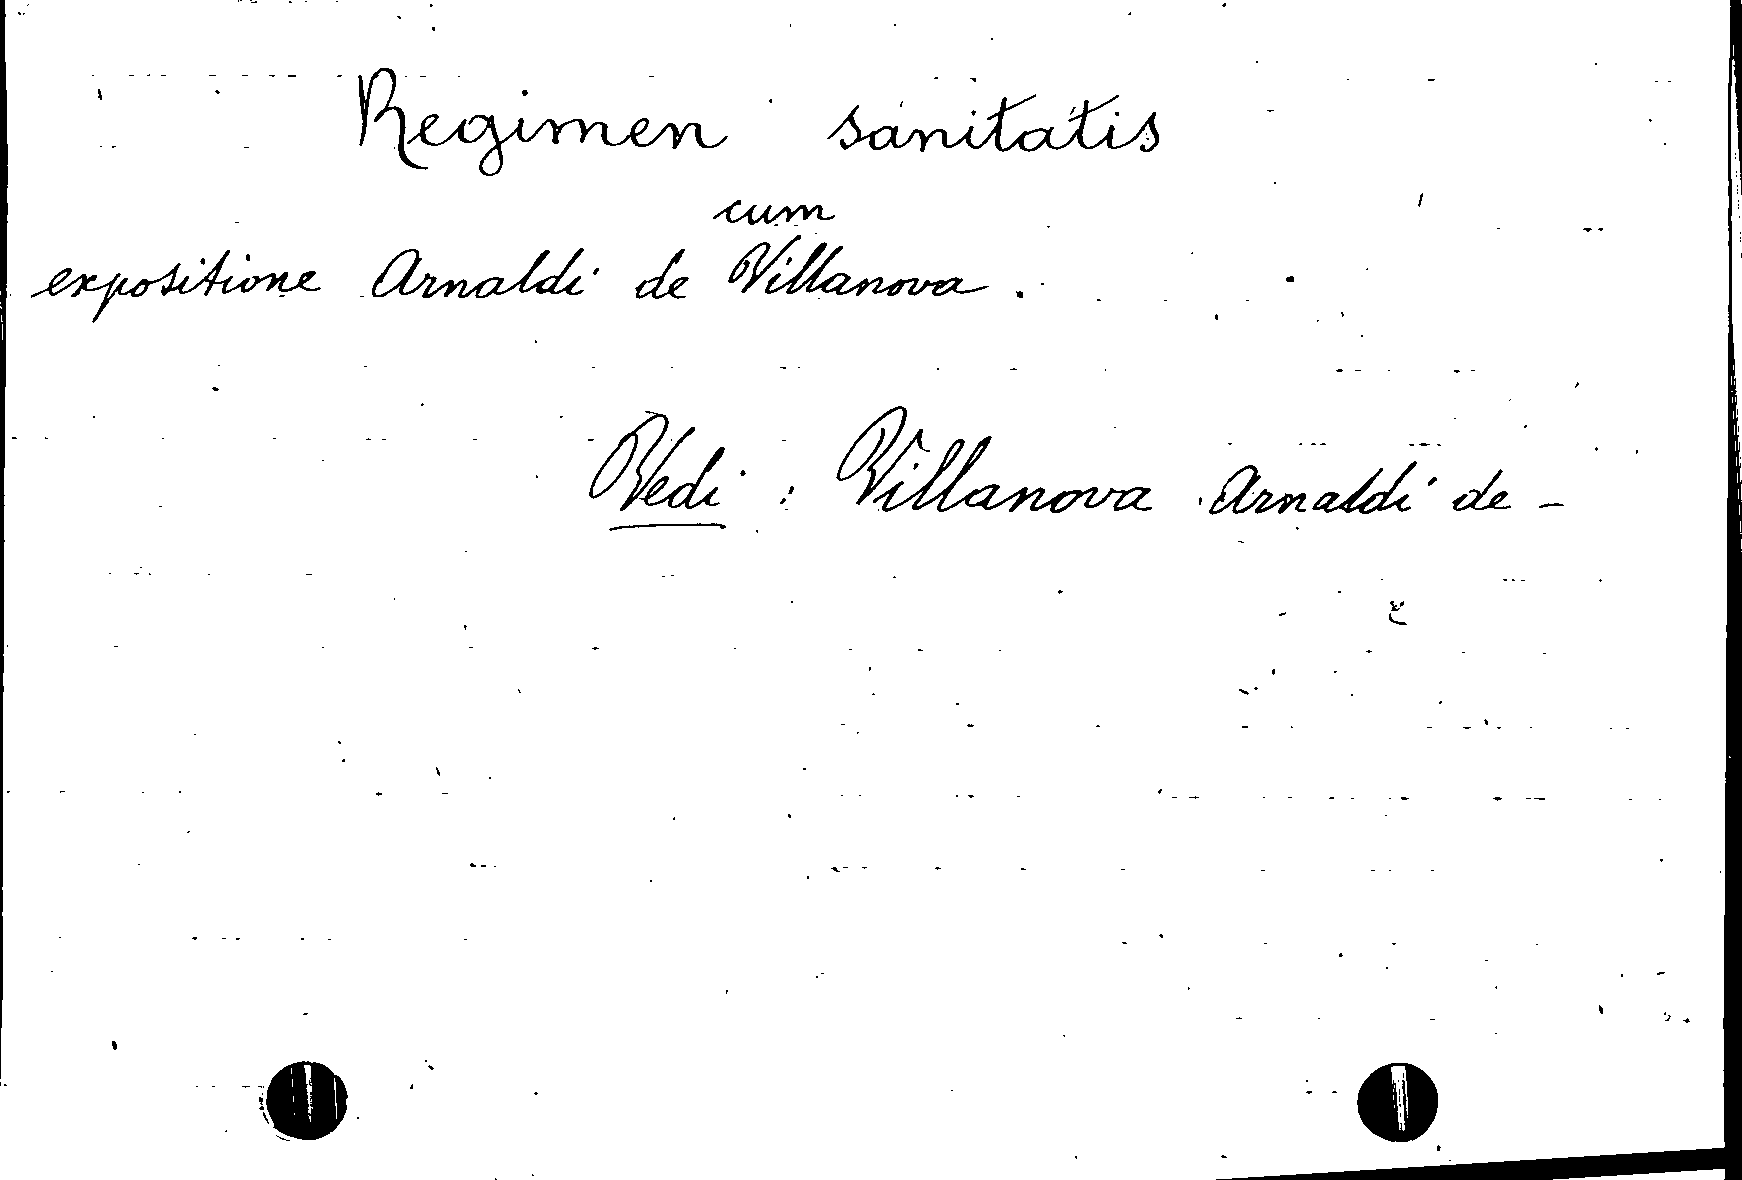 Regimen sanitatis
cum
expositione Arnaldi de Villanova.
Vedi: Villanova Arnaldi de -